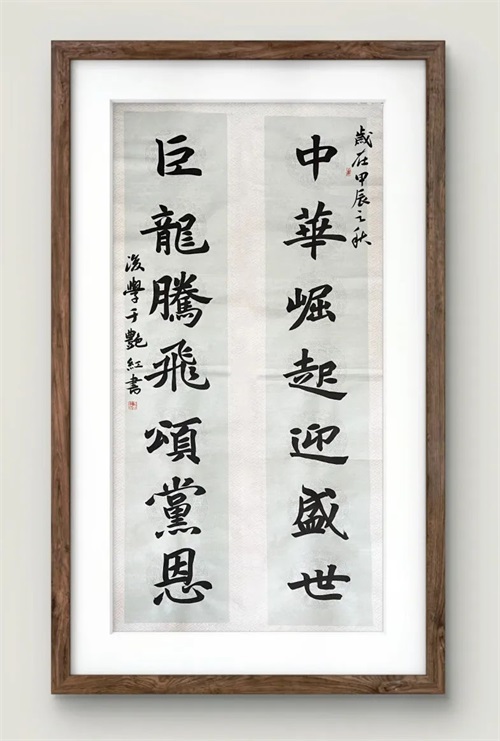 歲在甲辰之秋
中華崛起迎盛世
巨龍騰飛頌黨恩
後學于艷紅書